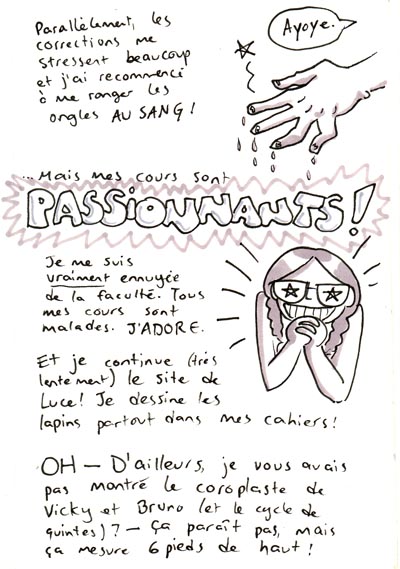 Parallèlement, les
corrections me
stressent beaucoup
et j'ai recommencé
à me ronger les
ongles AU SANG!
Ayoye.
...Mais mes cours sont
PASSiONNANTS!
Je me suis
vraiment ennuyée
de la faculté. Tous
mes cours sont
malades. J'ADORE.
Et je continue (très
lentement) le site de
Luce! Je dessine les
lapins partout dans mes cahiers!
OH — D'ailleurs, je vous avais
pas montré le coroplaste de
Vicky et Bruno (et le cycle de
quintes)? — Ça paraît pas, mais
ça mesure 6 pieds de haut!